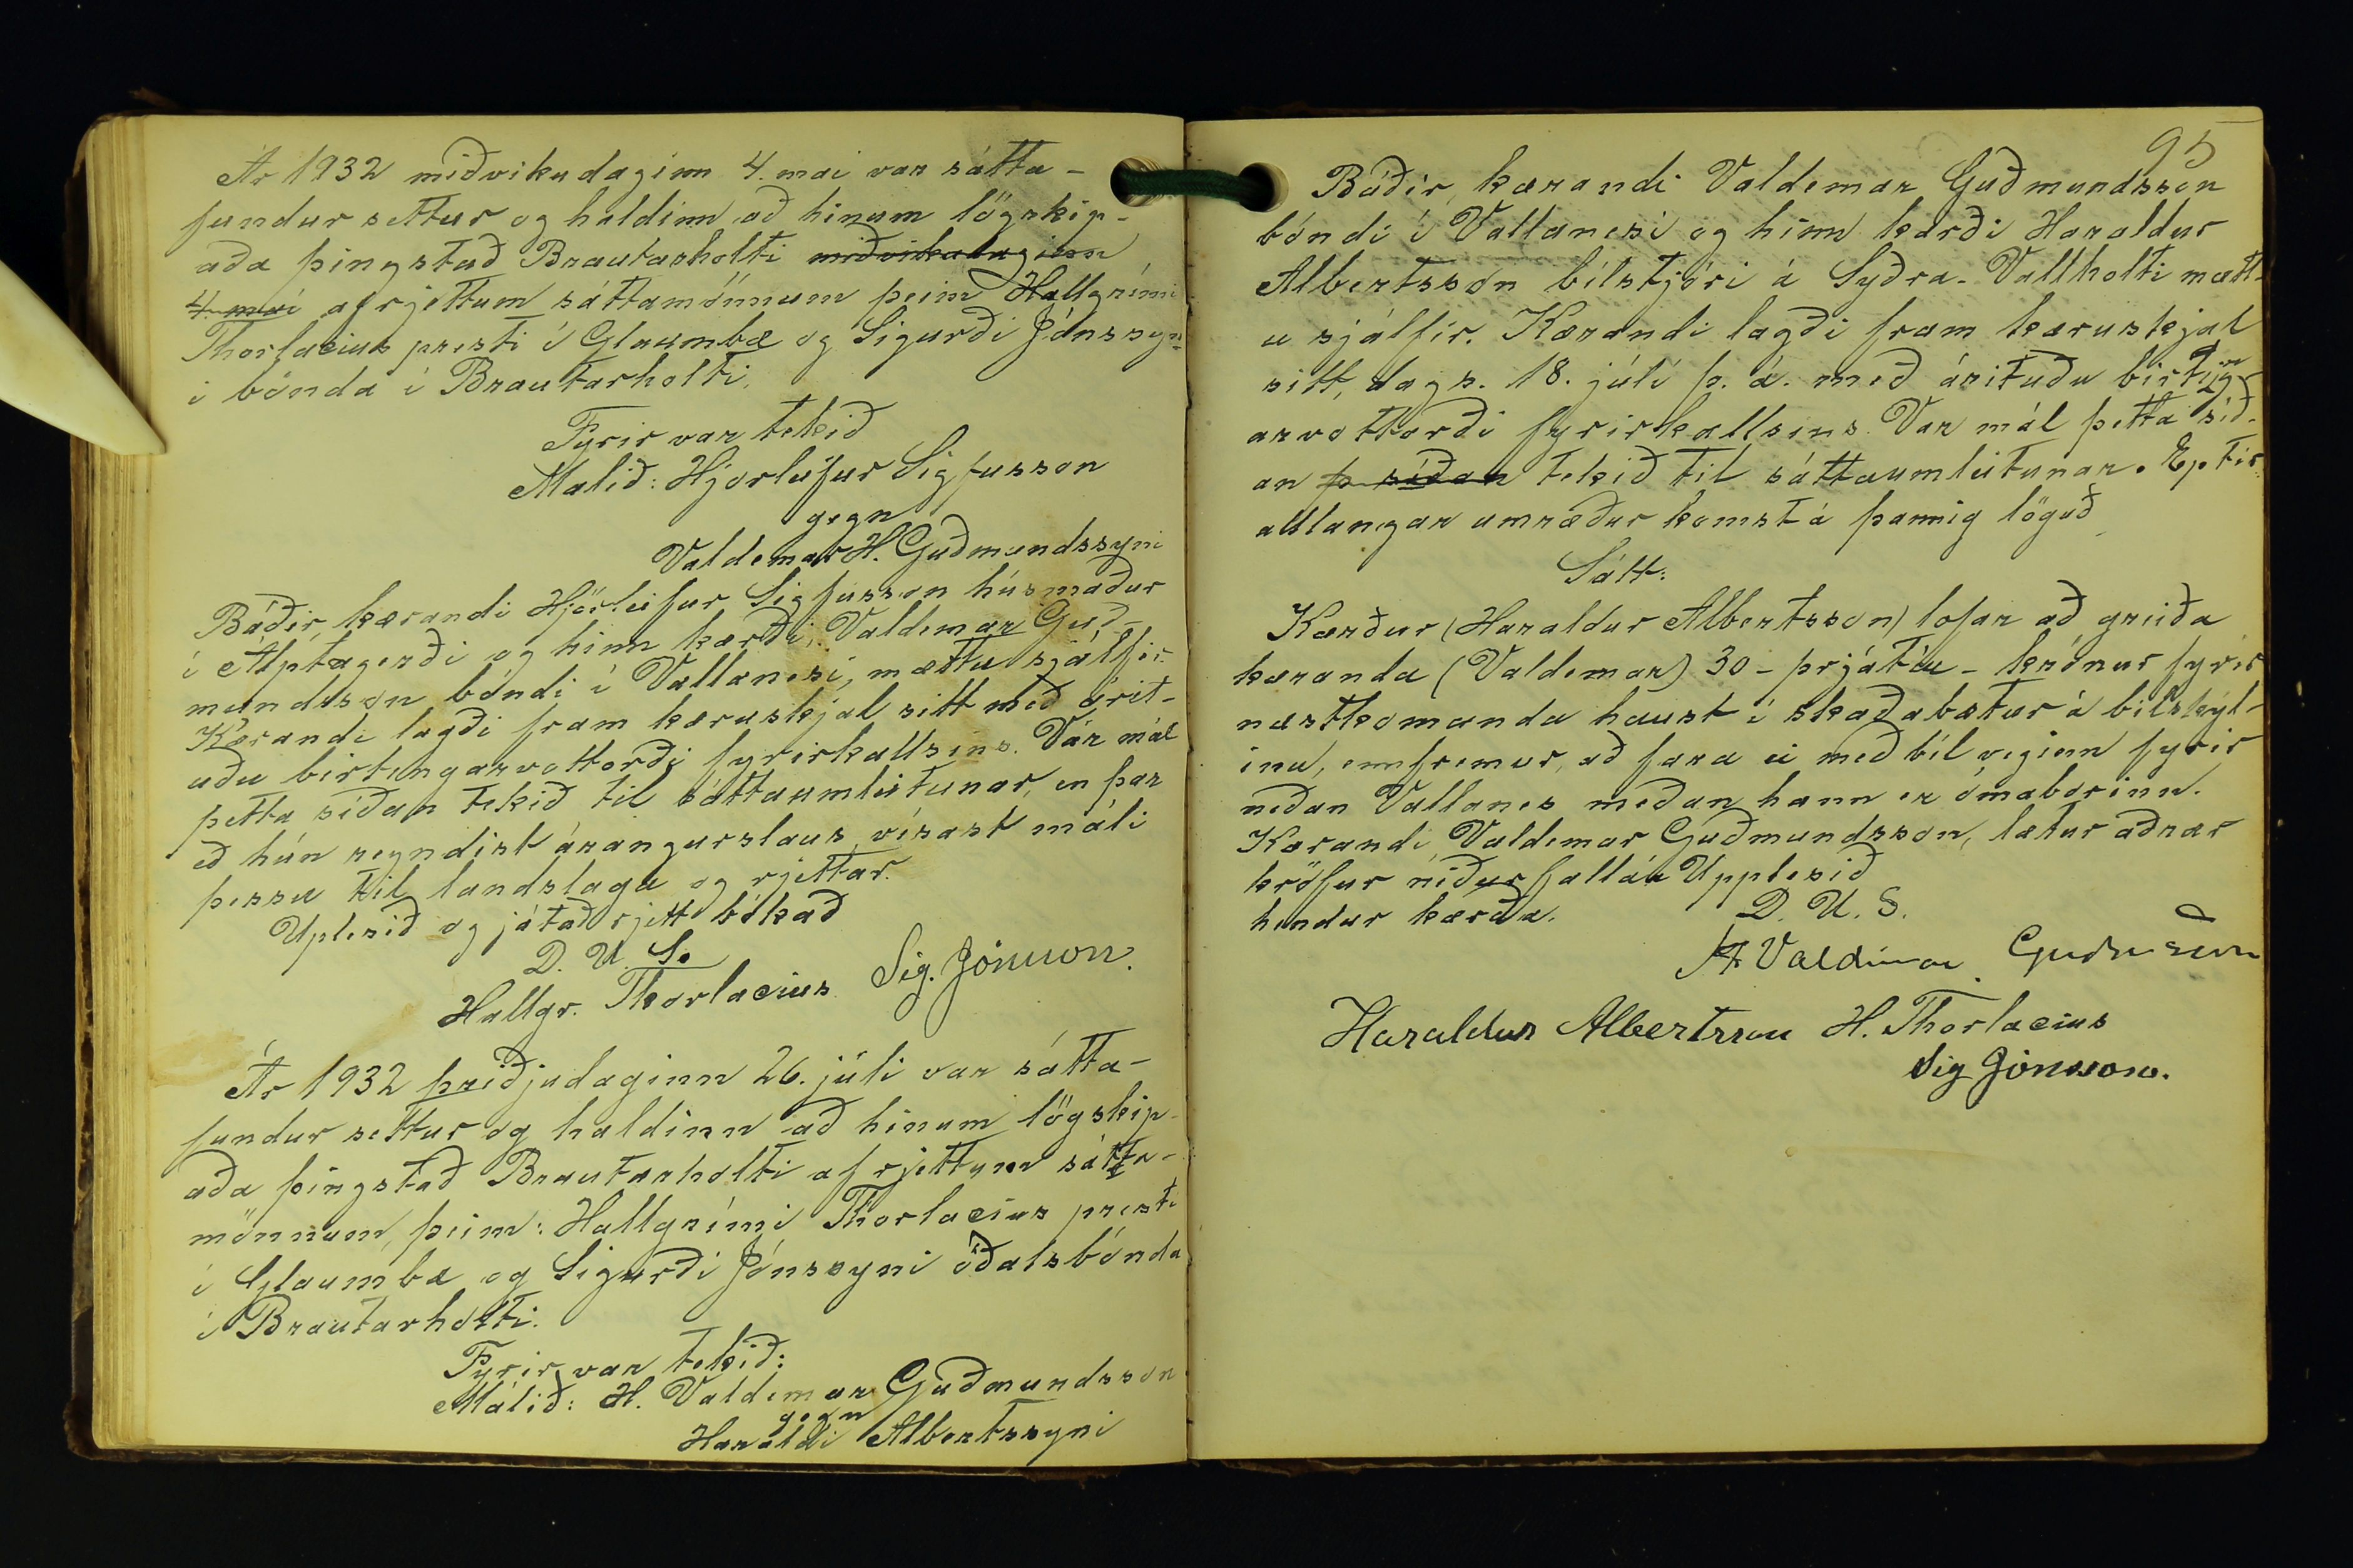 Ár 1932 miðvikudaginn 4. mai var sátta-
fundur settur og haldinn að hinum lögskip-
aða þingstað Brautarholti miðvikudaginn
4. mai af rjettum sáttamönnum þeim Hallgrími
Thorlacius presti í Glaumbæ og Sigurði Jónssyn-
i bónda í Brautarholti.
Fyrir var tekið
Malið: Hjorleifur Sigfusson
gegn
Valdemar H. Guðmundssyni
Báðir, kærandi Hjörleifur Sigfusson húsmaður
í Álptagerði og hinn kærði, Valdemar Guð-
mundsson bóndi í Vallanesi, mættu sjálfir.
Kærandi lagði fram kæruskjal sitt með árit-
uðu birtingarvottorði fyrirkallsins. Var mál
þetta síðan tekið til sáttaumleitunar, en þar
eð hún reyndist árangurslaus, vísast máli
þessu til landslaga og rjettar.
Uplesið og játað rjett bókað
D. U. S.
Hallgr. Thorlacius Sig. Jónsson.
Ár 1932 þriðjudaginn 26. júli var sátta-
fundur settur og haldinn að hinum lögskip-
aða þingstað Brautarholti af rjettum sátta-
mönnum, þeim: Hallgrími Thorlacius presti
í Glaumbæ og Sigurði Jónssyni óðalsbónda
í Brautarholti.
Fyrir var tekið:
Málið: H. Valdemar Guðmundsson
gegn
Haraldi Albertssyni
95
Báðir, kærandi Valdemar Guðmundsson
bóndi í Vallanesi og hinn kærði Haraldur
Albertsson bílstjóri á Syðra-Vallholti mætt-
u sjálfir. Kærandi lagði fram kæruskjal
sitt, dags. 18. júlí þ. á. með árituðu birting-
arvottorði fyrirkallsins. Var mál þetta síð-
an þ síðan tekið til sáttaumleitunar. Eptir
alllangar umræður komst á þannig löguð
Sátt:
Kærður (Haraldur Albertsson) lofar að greiða
kæranda (Valdemar) 30 - þrjátíu - krónur fyrir
næstkomanda haust í skaðabætur á bílskýl-
inu, ennfremur, að fara ei með bíl veginn fyrir
neðan Vallanes meðan hann er ómaborinn.
Kærandi, Valdemar Guðmundsson, lætur aðrar
kröfur niður falla á Upplesið
hendur kærða. D. U. S.
H Valdimar Guðmundsson
Haraldur Albertsson H. Thorlacius
Sig Jónsson.